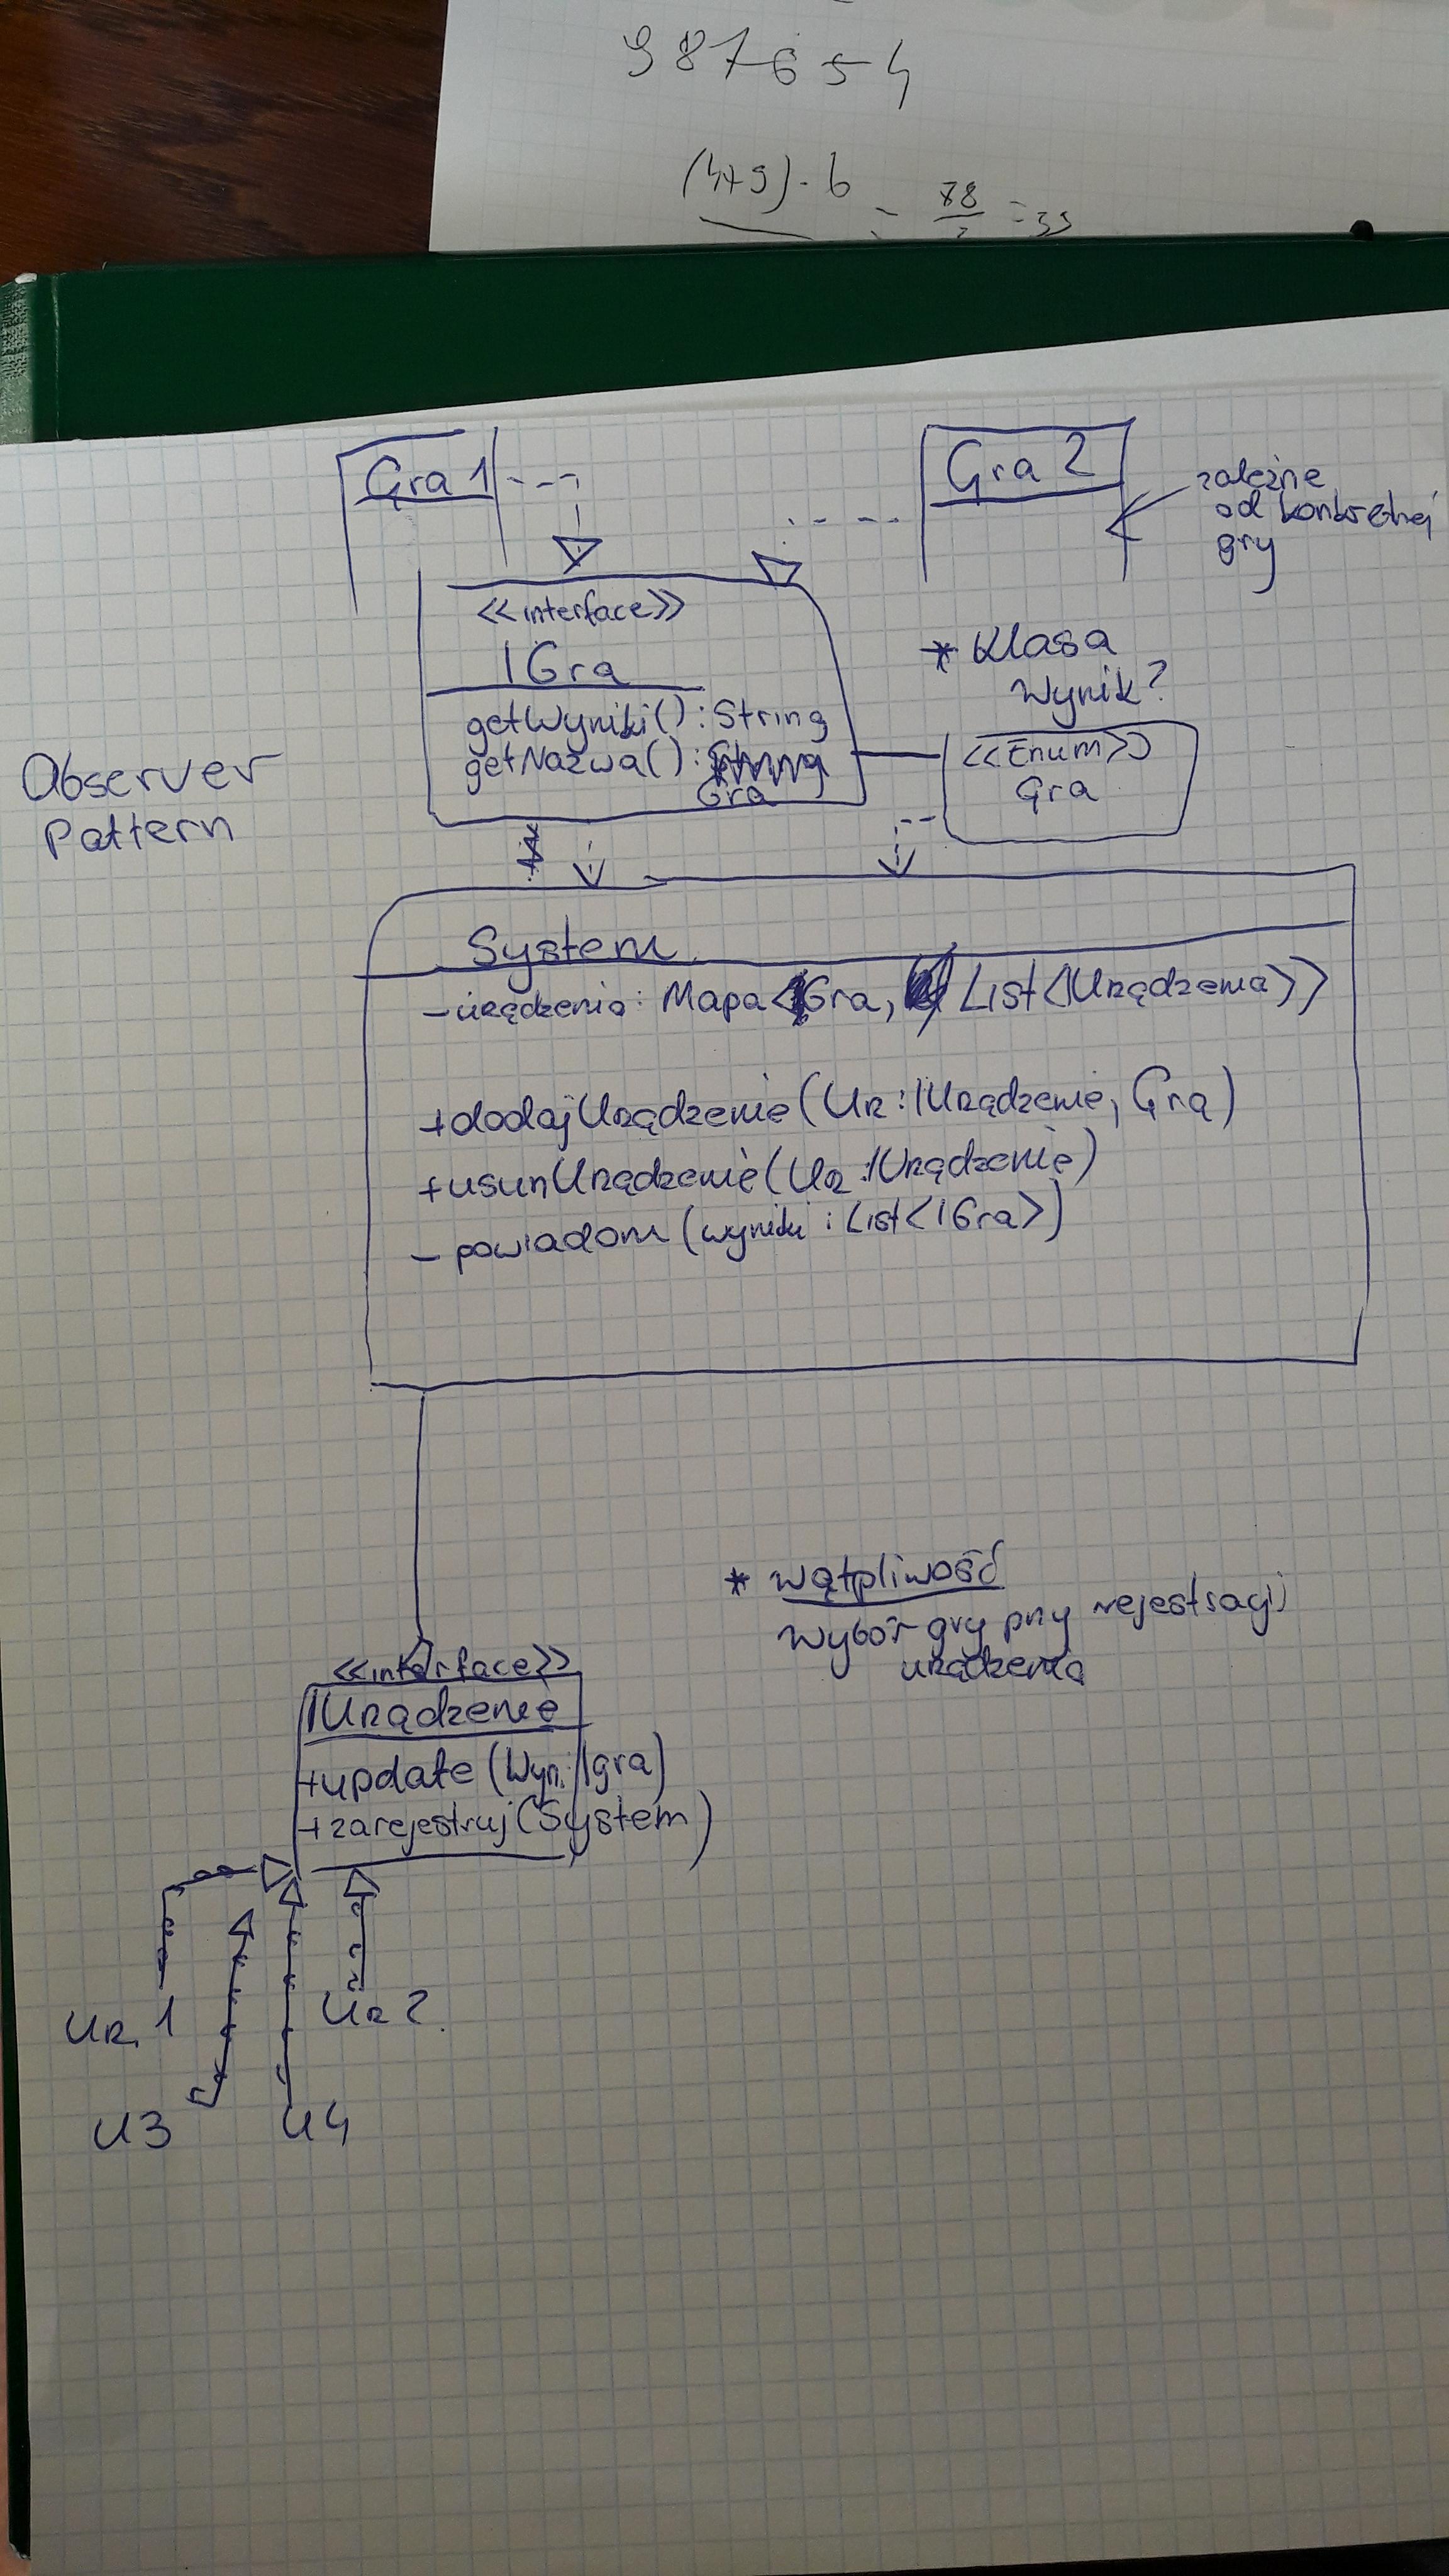 987654
(4+9)·6
= 78 = 39
Gra 1
Gra 2
zależne
od konkretnej
gry
<<interface>>
IGra
getWyniki() : String
getNazwa() : String
Gra
* Klasa
Wynik?
<<Enum>>
Gra
Observer
Pattern
System
- urządzenia: Mapa<Gra, List<IUrządzenia>>
+dodajUrządzenie(Urz:IUrządzenie, Gra)
+usunUrządzenie(Urz:IUrządzenie)
- powiadom (wyniki : List<IGra>)
* wątpliwość
wybór gry przy rejestracji
urządzenia
<<interface>>
IUrządzenie
+update (Wyn: Igra)
+zarejestruj(System)
Urz 1
Urz 2
U3
U4